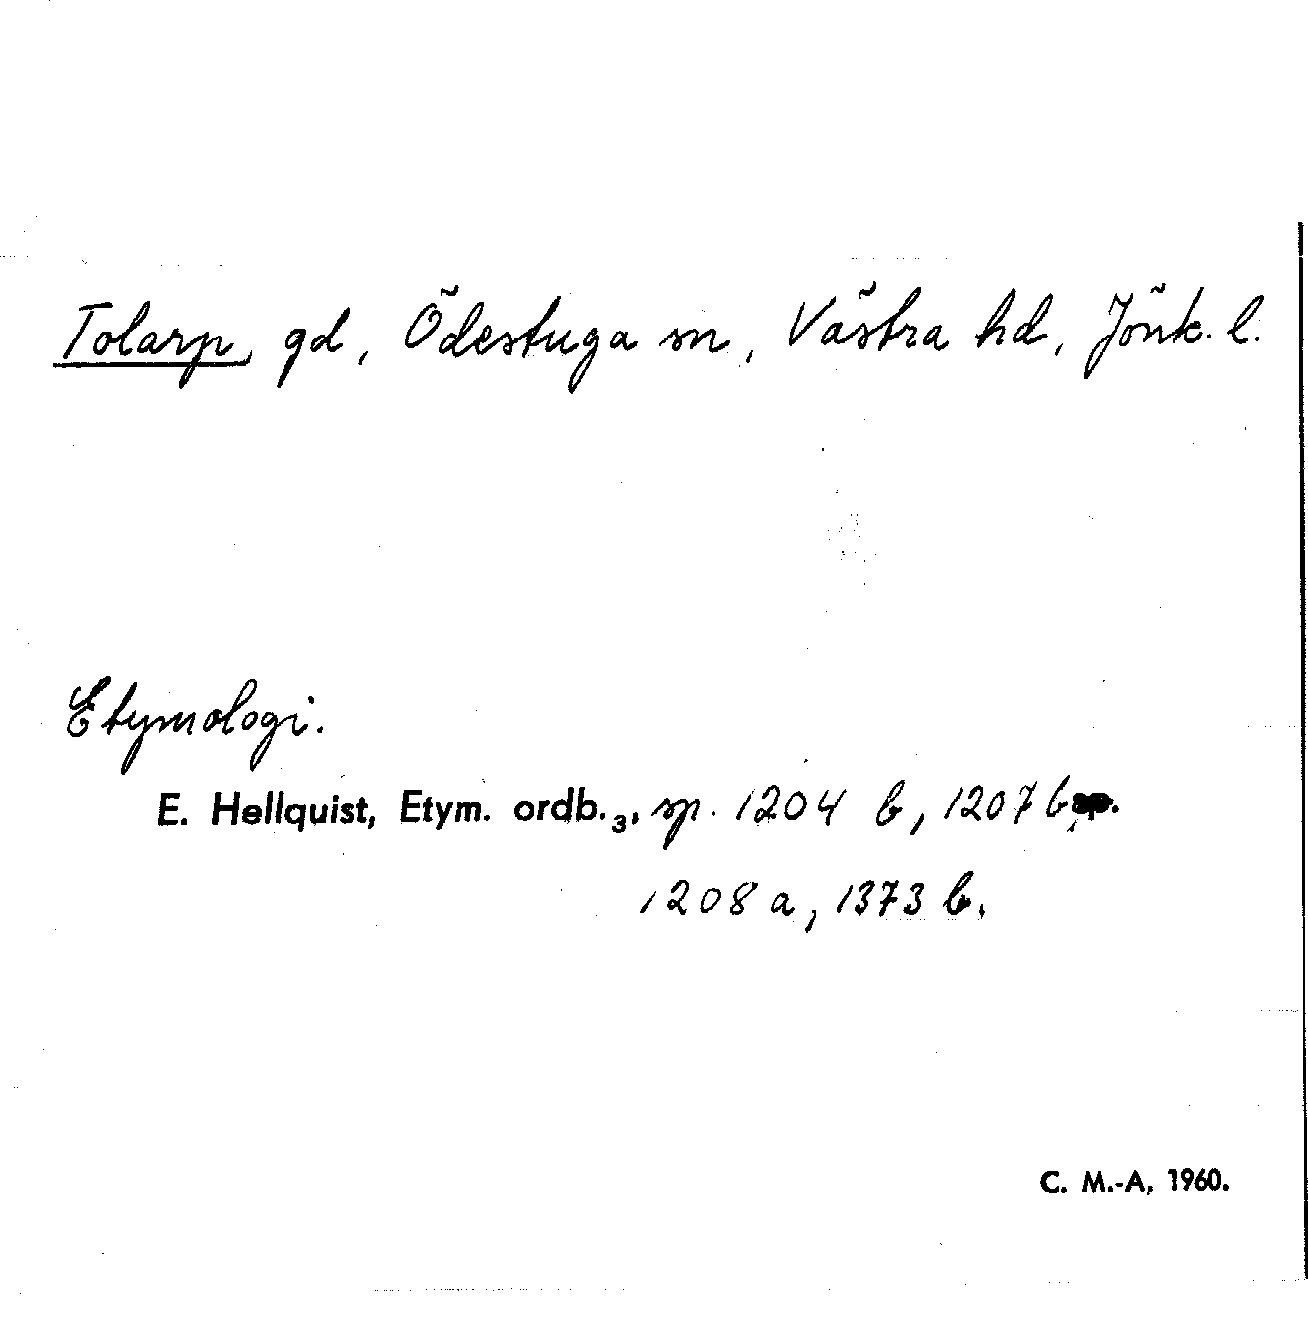 Tolarp, gd, Ödestuga sn, Västra hd, Jönk. l.
Etymologi.
E. Hellquist, Etym. ordb.₃, sp. 1204 b, 1207 b,
1208 a, 1373 b.
C. M.-A, 1960.